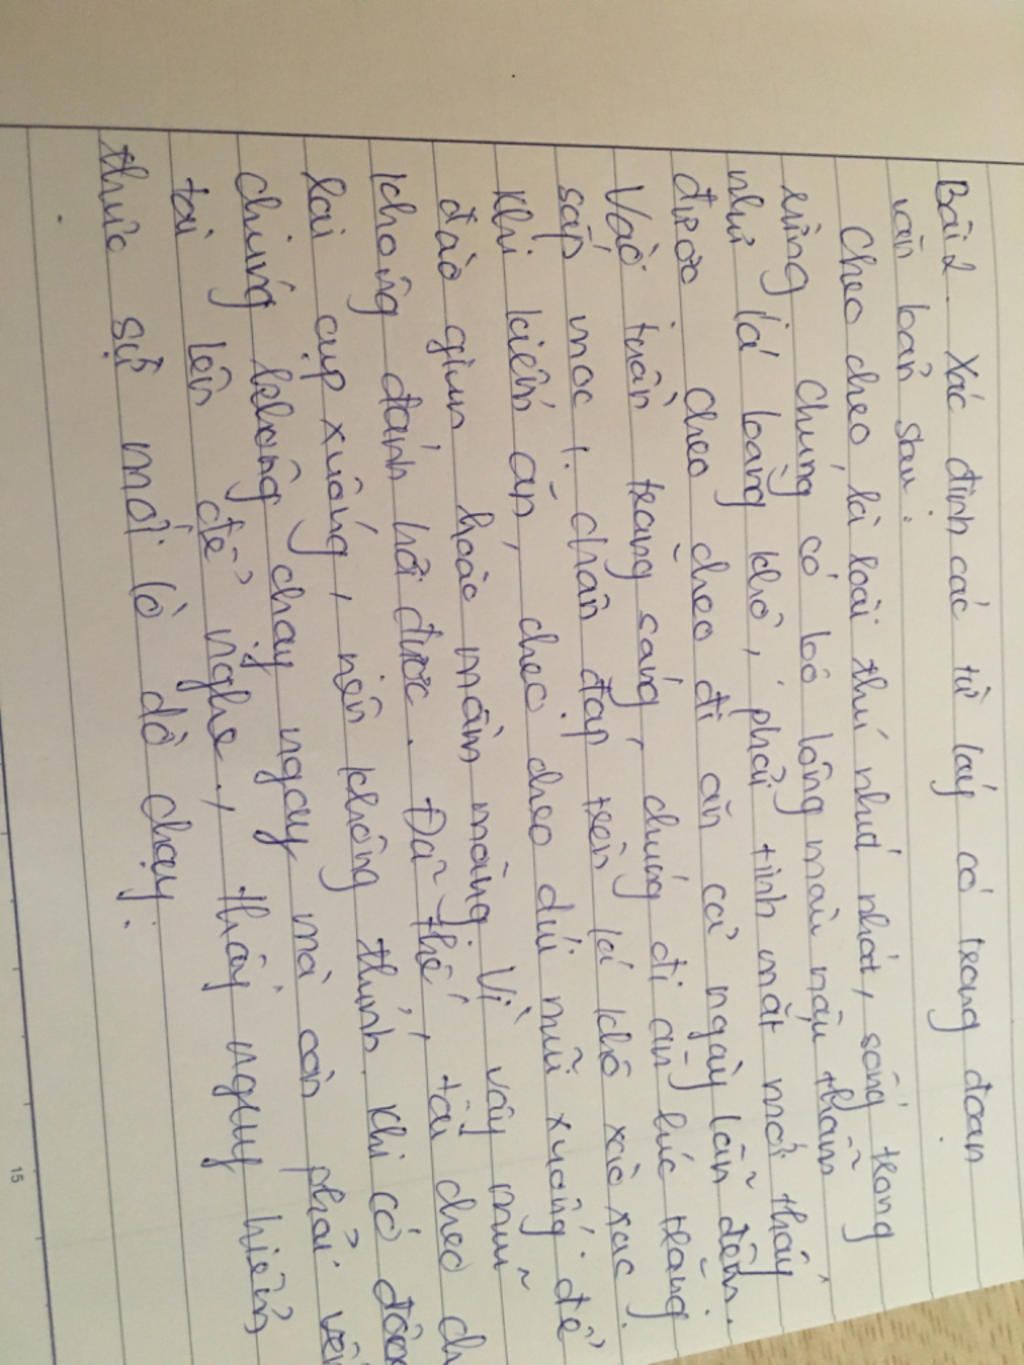 Bài 2. Xác định các từ láy có trong đoạn
văn bản sau:
Cheo cheo là loài thú nhỏ nhất, sống trong
rừng. Chúng có bộ lông màu nâu thẫm
như lá bàng khô, phải tinh mắt mới thấy
được. Cheo cheo đi ăn cả ngày lẫn đêm.
Vào tuần trăng sáng, chúng đi ăn lúc trăng
sắp mọc. chân đạp trên lá khô xào xạc.
Khi kiếm ăn, cheo cheo dúi mũi xuống để
đào giun hoặc mầm măng. Vì vậy mũi
không đánh hơi được. Đã thế, tai cheo ch
lại cụp xuống, nên không thính. Khi có độn
chúng không chạy ngay mà còn phải vên
tai lên để nghe, thấy nguy hiểm
thực sự mới lò dò chạy.
15